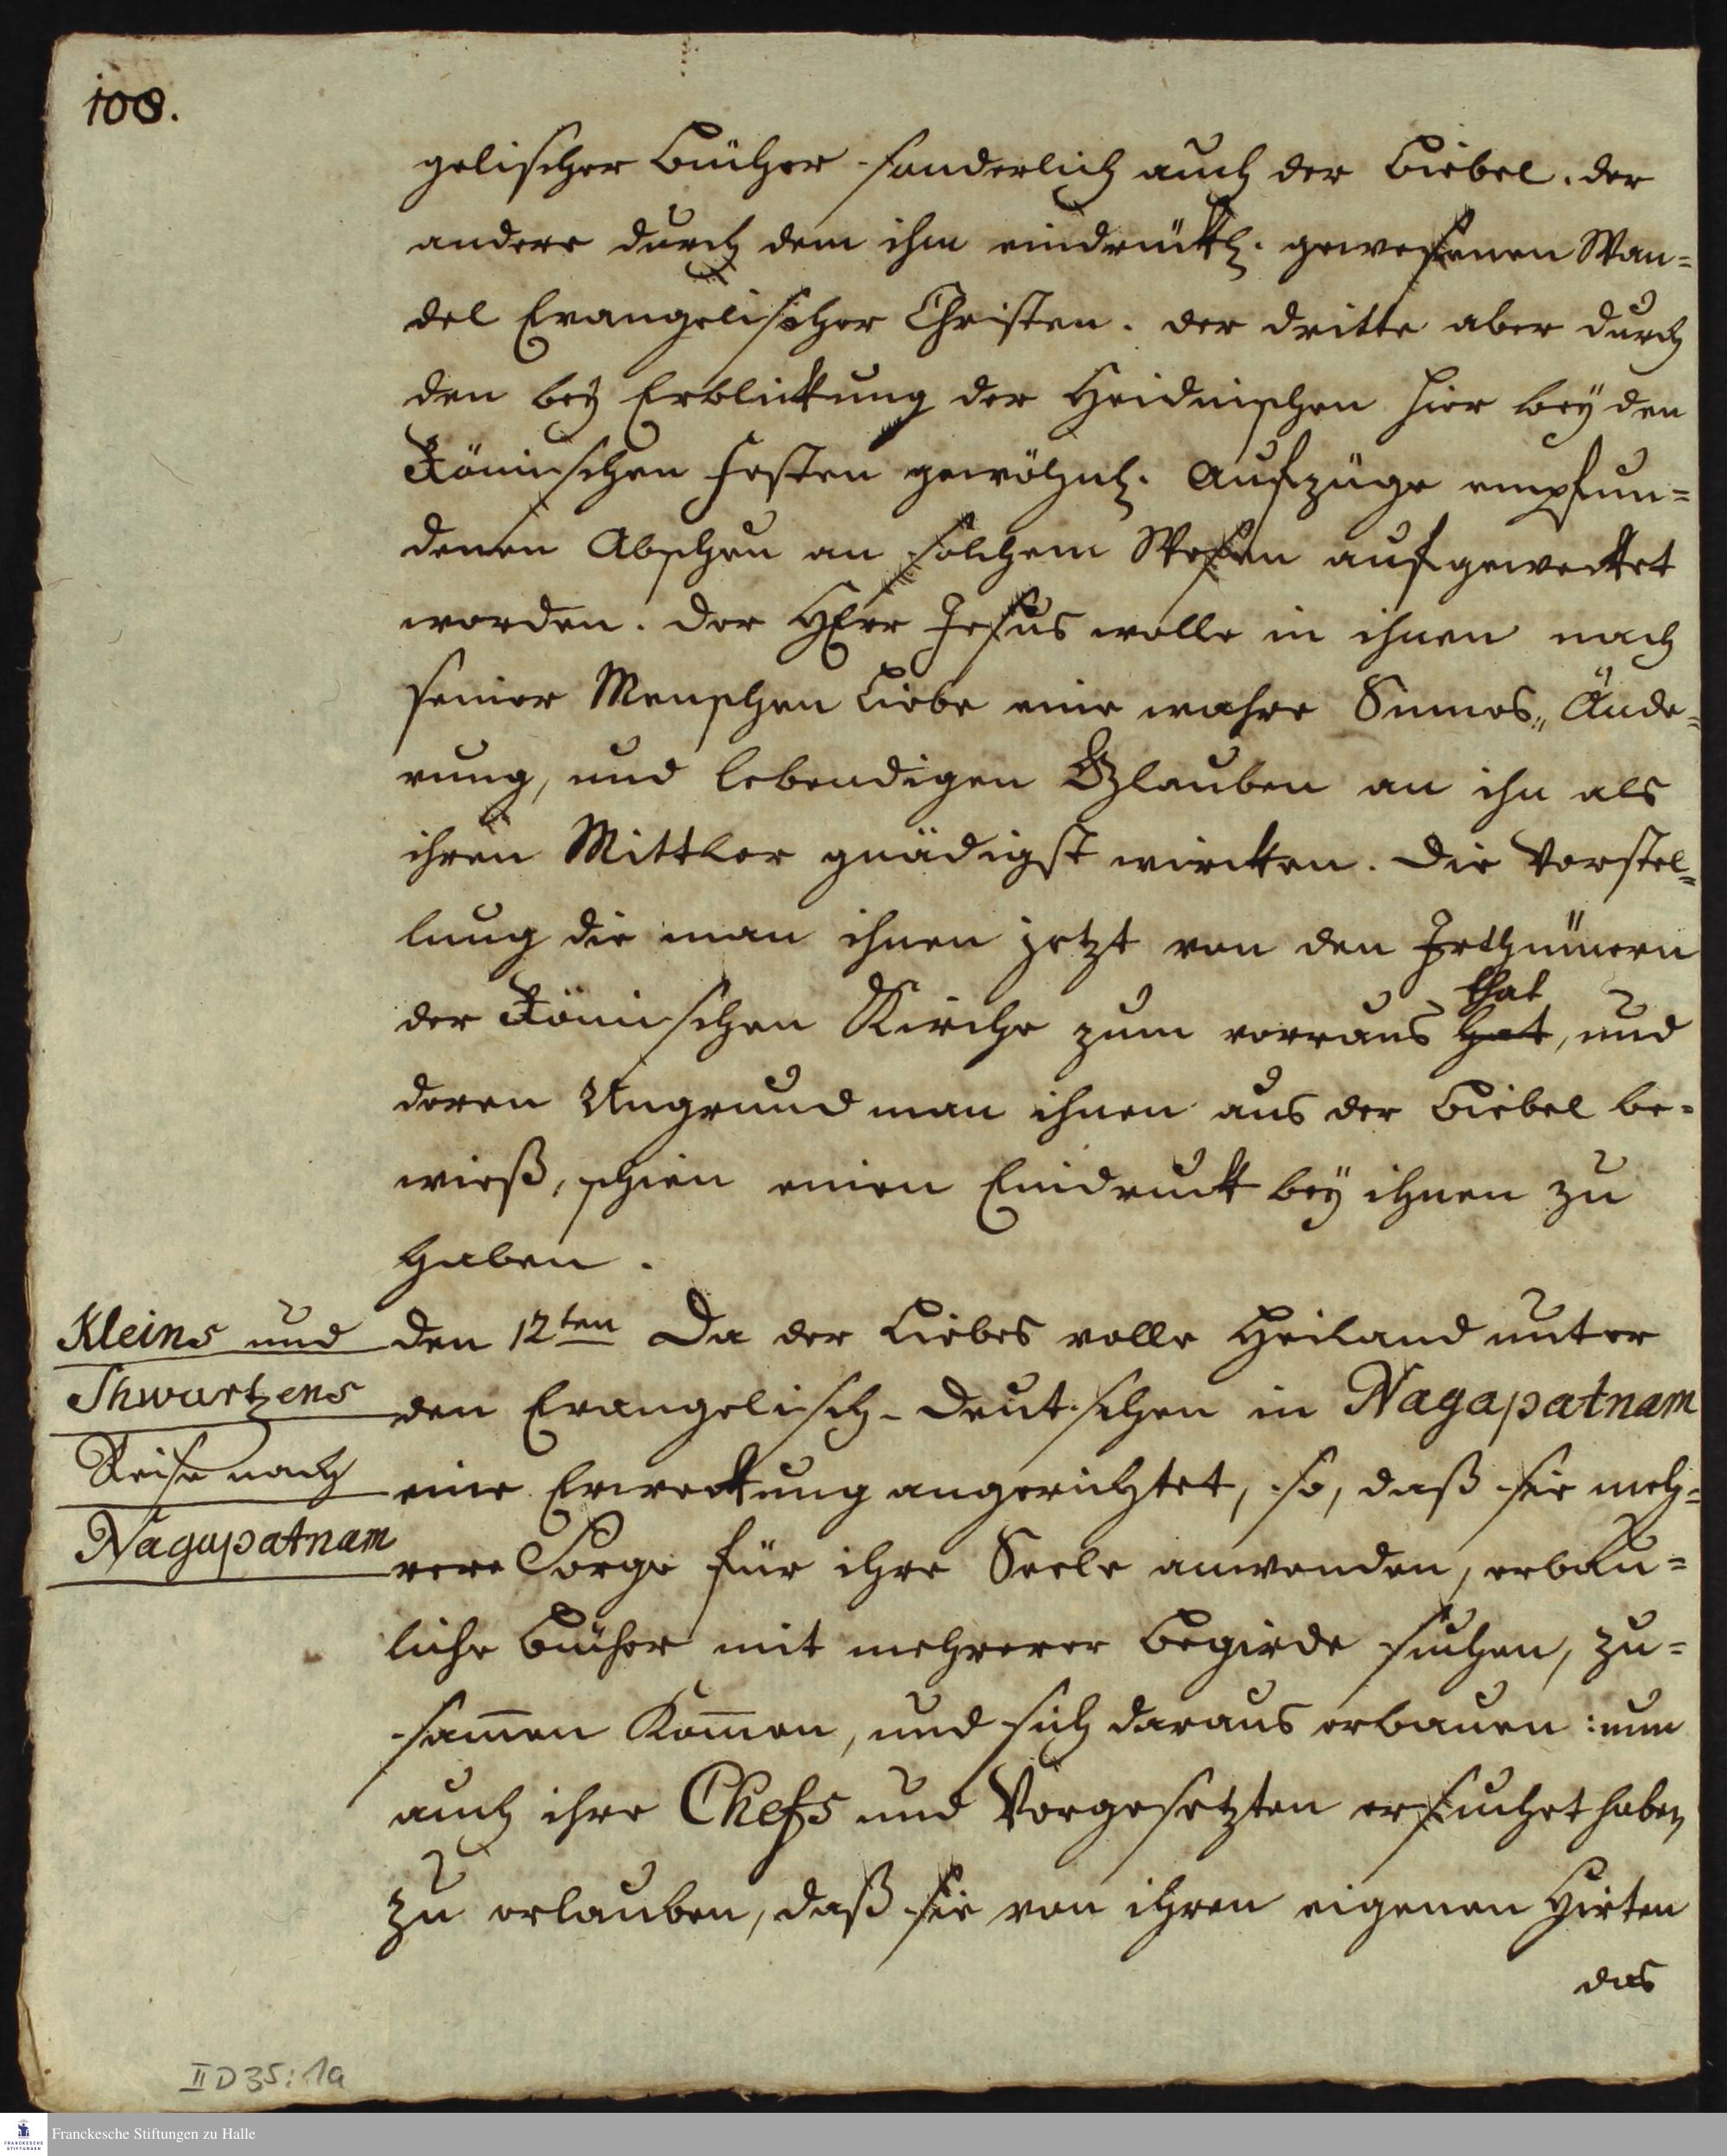 108.
gelischer Bücher sonderlich auch der Biebel. der
andere durch dem ihm eindrückl. gewesenen Wan=
del Evangelischer Christen. der dritte aber durch
den bey Erblickung der Heidnischen hier bey den
Römischen Festen gewöhnl. Aufzüge empfun=
denen Abscheu an solchem Wesen aufgewecket
worden. der HErr Jesus wolle in ihnen nach
seiner Menschen Liebe eine wahre Sinnes„ Ände=
rung, und lebendigen Glauben an ihn als
ihren Mittler gnädigst wircken. Die Vorstel=
lung die man ihnen jetzt von den Irthümern
der Römischen Kirche zum vorraus hat that, und
deren Ungrund man ihnen aus der Biebel be=
wieß, schien einen Eindruck bey ihnen zu
haben.
Kleins und
Shwartzens
Reise nach
Nagapatnam
den 12ten Da der Liebes volle Heiland unter
den Evangelisch-Deutschen in Nagapatnam
eine Erweckung angerichtet, so, daß sie meh=
rere Sorge für ihre Seele anwenden, erbau=
liche Bücher mit mehrerer Begirde suchen, zu=
sam̅en Kom̅en, und sich daraus erbauen: nun
auch ihre Chefs und Vorgesetzten ersuchet haben
zu erlauben, daß sie von ihren eigenen Hirten
das
II D 35 : 1a
Franckesche Stiftungen zu Halle
FRANCKESCHE
STIFTUNGEN